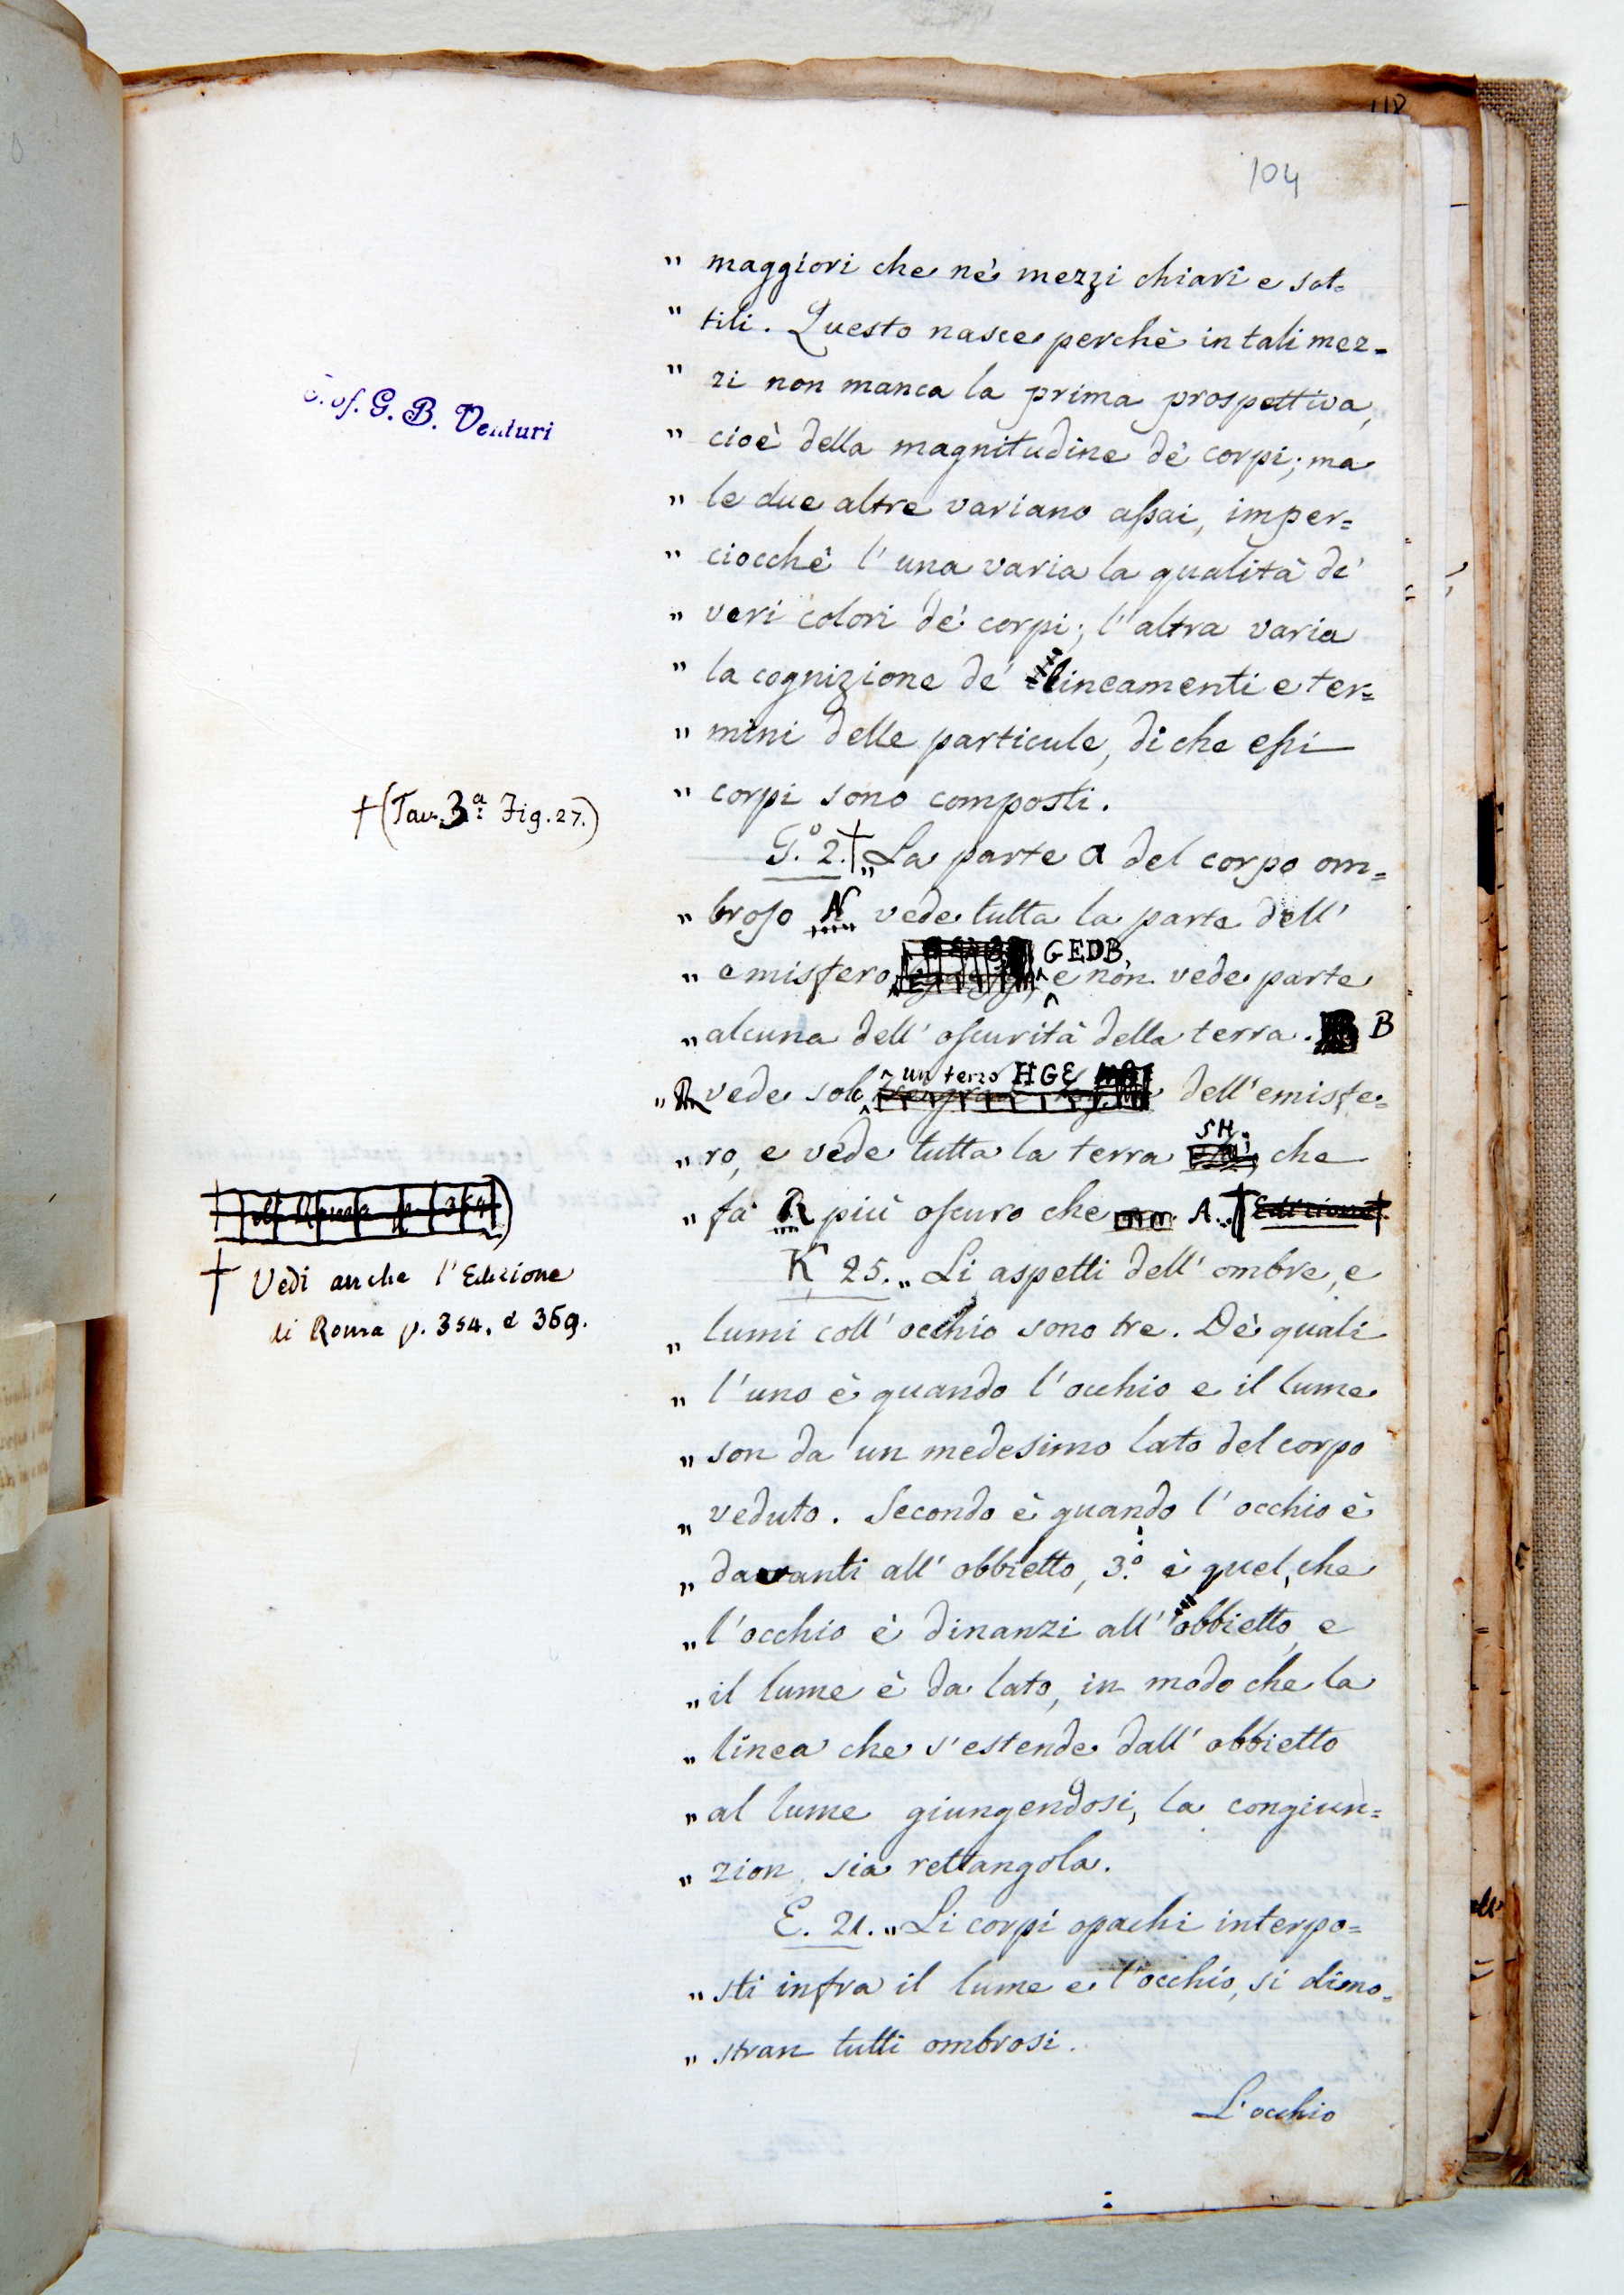 104
" maggiori che ne' mezzi chiari e sot=
" tili. Questo nasce perchè in tali mez=
" zi non manca la prima prospettiva,
" cioè della magnitudine de' corpi; ma
" le due altre variano assai, imper=
" ciocchè l'una varia la qualità de'
" veri colori de' corpi; l'altra varia
" la cognizione de' lineamenti e ter=
" mini delle particule, di che essi
" corpi sono composti.
G. 2.† „ La parte a del corpo om=
„ broso N vede tutta la parte dell'
„ emisfero GEDB, e non vede parte
„ alcuna dell' oscurità della terra. B
„ R vede sol un terzo HGE dell'emisfe=
„ ro, e vede tutta la terra SH; che
„ fa R più oscuro che A. †
K 25. „ Li aspetti dell' ombre, e
„ lumi coll' occhio sono tre. De' quali
„ l'uno è quando l'occhio e il lume
„ son da un medesimo lato del corpo
„ veduto. Secondo è quando l'occhio è
„ davanti all' obbietto, 3.º è quel, che
„ l'occhio è dinanzi all' obbietto, e
„ il lume è da lato, in modo che la
„ linea che s'estende dall' obbietto
„ al lume giungendosi, la congiun=
„ zion, sia rettangola.
E. 21. „ Li corpi opachi interpo=
„ sti infra il lume e l'occhio, si dimo=
„ stran tutti ombrosi.
L'occhio
G. B. Venturi
† (Tav. 3ª Fig. 27.)
† Vedi anche l'Edizione
di Roma p. 354. e 369.